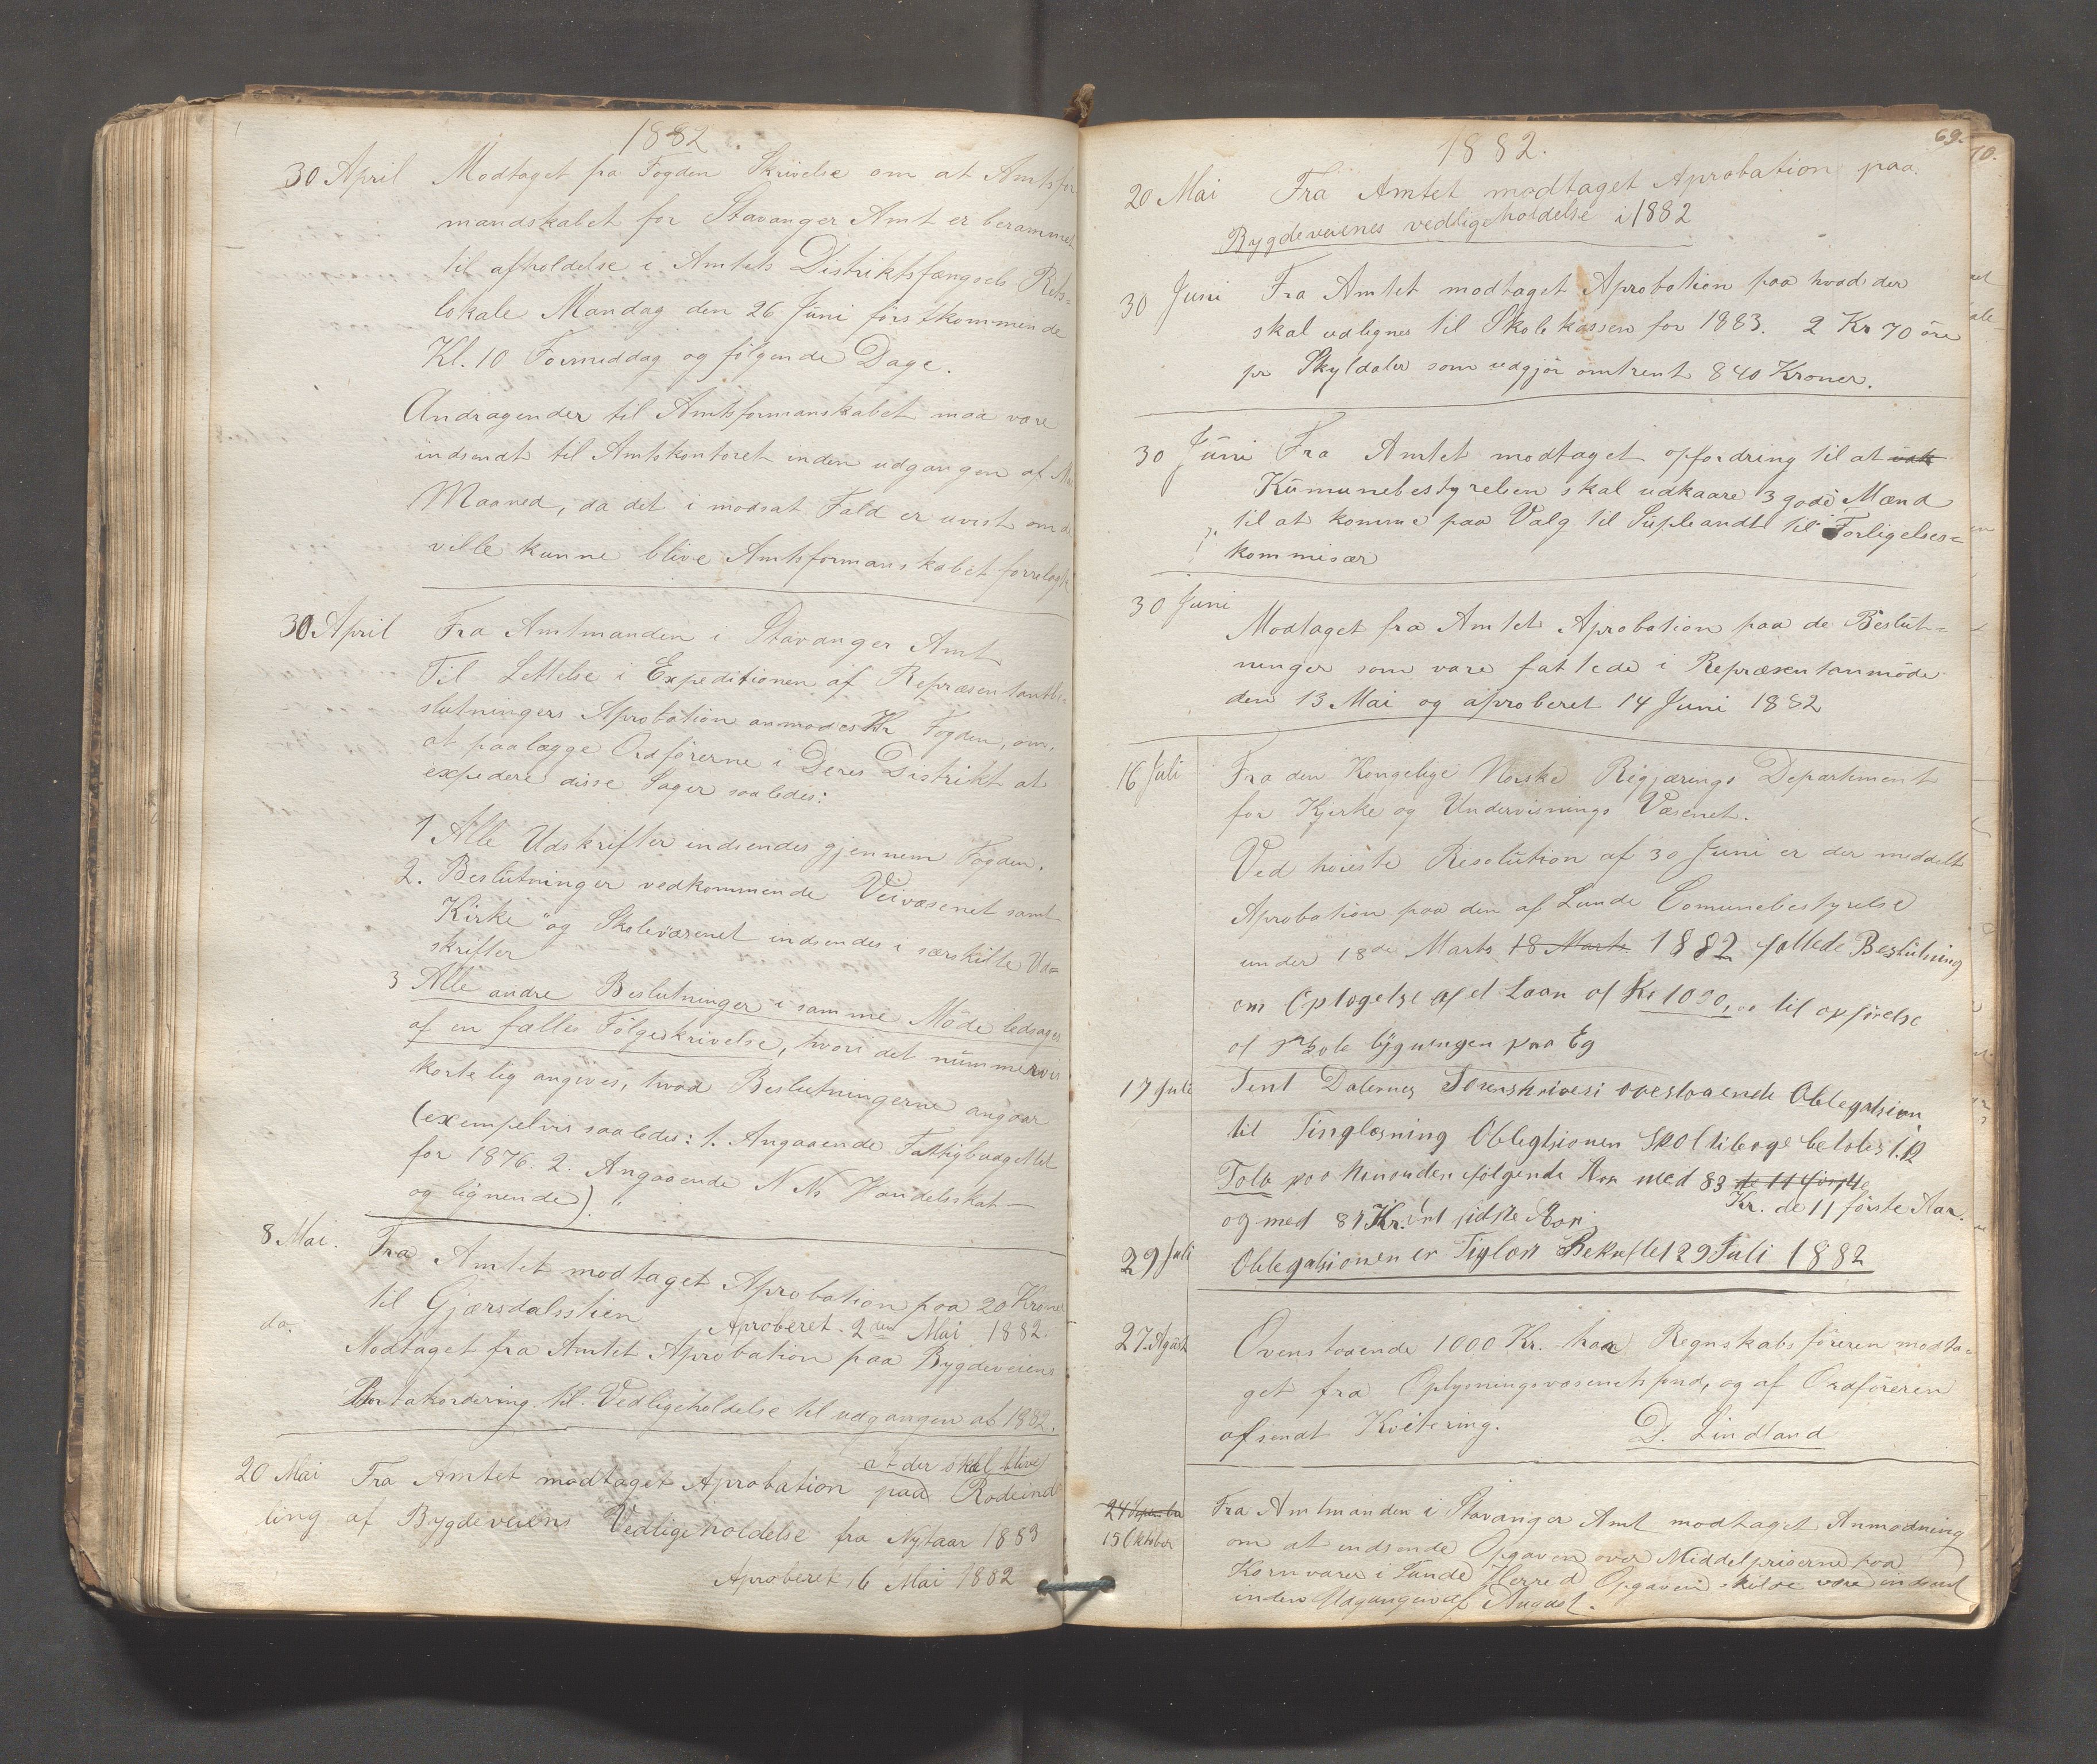 1882.
30 April Modtaget fra Fogden Skrivelse om at Amtsfor
mandskabet for Stavanger Amt er berammet
til afholdelse i Amtets Distriktsfængsels Rets=
lokale Mandag den 26 Juni förstkommende
Kl. 10 Formeddag og følgende Dage.
Andragender til Amtsformanskabet maa være
indsendt til Amtskontoret inden udgangen af
Maaned, da det i modsat Fald er uvist om de
ville kunne blive Amtsformanskabet forrelagt
30 April Fra Amtmanden i Stavanger Amt
Til Lettelse i Expeditionen af Repræsentantbe-
slutningers Aprobation anmodes Hr Fogden, om,
at paalægge Ordförerne i Deres Distrikt at
expedere disse Sager saaledes:
1 Alle Udskrifter indsendes gjennem Fogden.
2. Beslutninger vedkommende Veivæsenet samt
Kirke og Skolevæsenet indsendes i særskilte Ud=
skrifter
3 Alle andre Beslutninger i samme Möde ledsages
af en fælles Fölgeskrivelse, hvori det nummervis
kortelig angives, hvad Beslutningerne angaar
(exempelvis saaledes: 1. Angaaende Fattigbudgettet
for 1876. 2. Angaaende N Ns Handelsskat —
og lignende).
8 Mai. Fra Amtet modtaget Aprobation paa 20 Kroner
til Gjærsdalsstien Aproberet 2den Mai 1882.
do. Modtaget fra Amtet Aprobation paa Bygdeveiens
Bortakordering til Vedligeholdelse til udgangen af 1882.
at der skal blive
20 Mai Fra Amtet modtaget Aprobation paa Rodeind
ling af Bygdeveiens Vedligeholdelse fra Nytaar 1883
Aproberet 16 Mai 1882
69.
70.
1882.
20 Mai Fra Amtet modtaget Aprobation paa
Bygdeveienes vedligeholdelse i 1882
30 Juni Fra Amtet modtaget Aprobation paa hvad der
skal udlignes til Skolekassen for 1883. 2 Kr 70 öre
pr Skyldaler som udgjör omtrent 840 Kroner.
30 Juni Fra Amtet modtaget opfordring til at
Kumunebestyrelsen skal udkaare 3 gode Mænd
til at komme paa Valg til Supleandt til Forligelses=
kommisær
30 Juni
Modtaget fra Amtet Aprobation paa de Beslut=
ninger som vare fattede i Repræsentanmöde
den 13 Mai og aproberet 14 Juni 1882
16 Juli Fra den Kongelige Norske Rigjærings Departement
for Kjerke og Undervisnings Væsenet.
Ved höieste Resolution af 30 Juni er der meddelt
Aprobation paa den af Lunde Comunebestyrelse
under 18de Marts 18 Marts 1882 fattede Beslutning
om Optagelse af et Laan af Kr 1000,00 til opförelse
af Skolebygningen paa Eg
17 Juli Sent Dalernes Sorenskriveri ovestaaende Oblegatsion
til Tinglæsning Oblegtsionen skal tilbage betales i 12
Tolv paa hinanden følgende Aar med 83 de 11 förste
Kr. de 11 förste Aar.
og med 87 Kr. det sidste Aar
29 Juli Oblegatsionen er Tiglæst Bekræftet 29 Juli 1882
27. Agust Ovenstaaende 1000 Kr. haar Regnskabsföreren modta=
get fra Oplysningsvæsenetsfond, og af Ordföreren
afsendt Kvitering. D. Lindland
15 Oktober Fra Amtmanden i Stavanger Amt modtaget Anmodning
om at indsende Opgaven over Middelpriserne paa
Kornvarer i Lunde Herred Opgaven skulde være indsent
inden Udgangen af August.